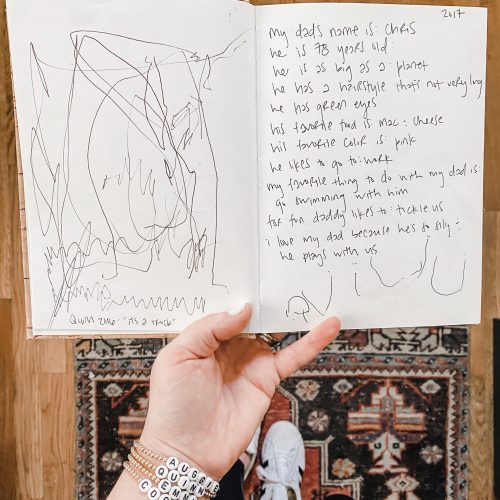 2017
my dad's name is: CHRIS
he is 78 years old
he is as big as a: planet
he has a hairstyle that's not very long
he has green eyes
his favorite food is mac + cheese
his favorite color is: pink
he likes to go to: work
my favorite thing to do with my dad is:
go swimming with him
for fun daddy likes to: tickle us
i love my dad because he's so silly +
he plays with us
Quinn 2016 "it's a truck"
AUGGIE
QUINN
EMME
COO